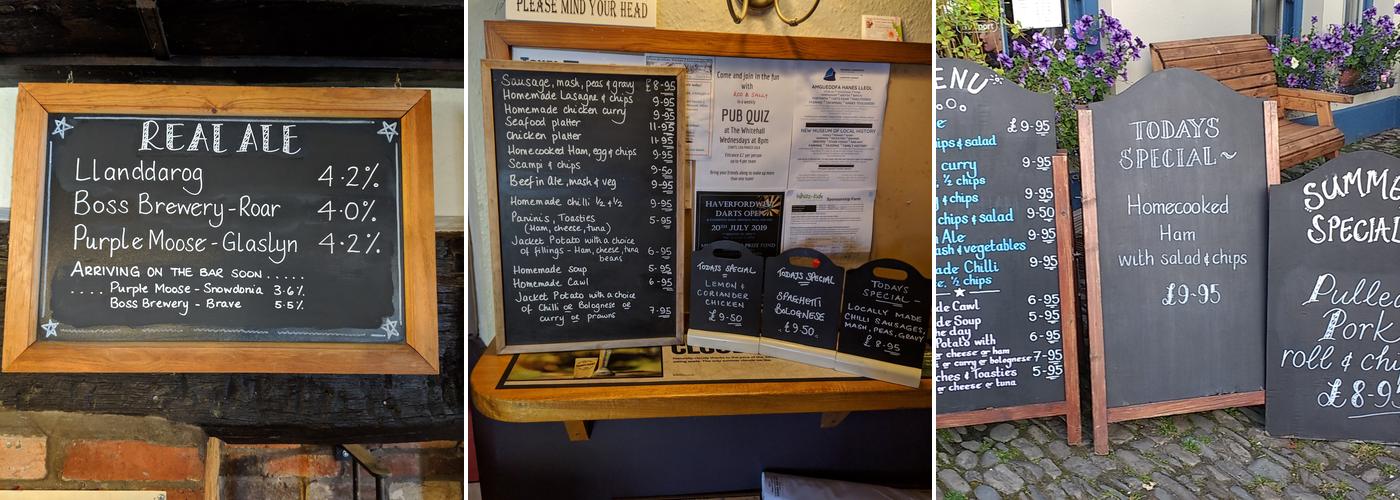 REAL ALE
Llanddarog 4.2%
Boss Brewery-Roar 4.0%
Purple Moose-Glaslyn 4.2%
ARRIVING ON THE BAR SOON .....
.... Purple Moose-Snowdonia 3.6%
Boss Brewery - Brave 5.5%
PLEASE MIND YOUR HEAD
Sausage, mash, peas & gravy £8-95
Homemade Lasagne & chips 9-95
Homemade chicken curry 9-95
Seafood platter 11-95
Chicken platter 11-95
Homecooked Ham, egg & chips 9-95
Scampi & chips 9-50
Beef in Ale, mash & veg 9-95
Homemade chilli ½ & ½ 9-95
Panini's, Toasties 5-95
(Ham, cheese, tuna)
Jacket Potato with a choice
of fillings - Ham, cheese, tuna 6-95
beans
Homemade soup 5-95
Homemade Cawl 6-95
Jacket Potato with a choice
of Chilli or Bolognese or 7-95
curry or prawns
Come and join in the fun
with
ROD & SALLY
in a weekly
PUB QUIZ
at The Whitehall
Wednesdays at 8pm
Entrance £2 per person
up to 4 per team
Bring your friends along to make up more
than one team!
AMGUEDDFA HANES LLEOL
NEW MUSEUM OF LOCAL HISTORY
HAVERFORDWEST
DARTS OPEN
20TH JULY 2019
Sponsorship Form
TODAYS SPECIAL
LEMON &
CORIANDER
CHICKEN
£9-50
TODAYS SPECIAL
SPAGHETTI
BOLOGNESE
£9.50
TODAYS
SPECIAL -
LOCALLY MADE
CHILLI SAUSAGES,
MASH, PEAS, GRAVY
£8-95
ENU
£9-95
ips & salad
curry
½ chips 9-95
chips & salad 9-50
Ale 9-95
ash & vegetables
ade Chilli 9-95
e. ½ chips
de Cawl 6-95
de Soup 5-95
he day 6-95
Potato with
or cheese or ham
or curry or bolognese 7-95
ches & Toasties 5-95
cheese or tuna
TODAYS
SPECIAL~
Homecooked
Ham
with salad & chips
£9-95
SUMME
SPECIAL
Pulle
Pork
roll & chi
£8-95